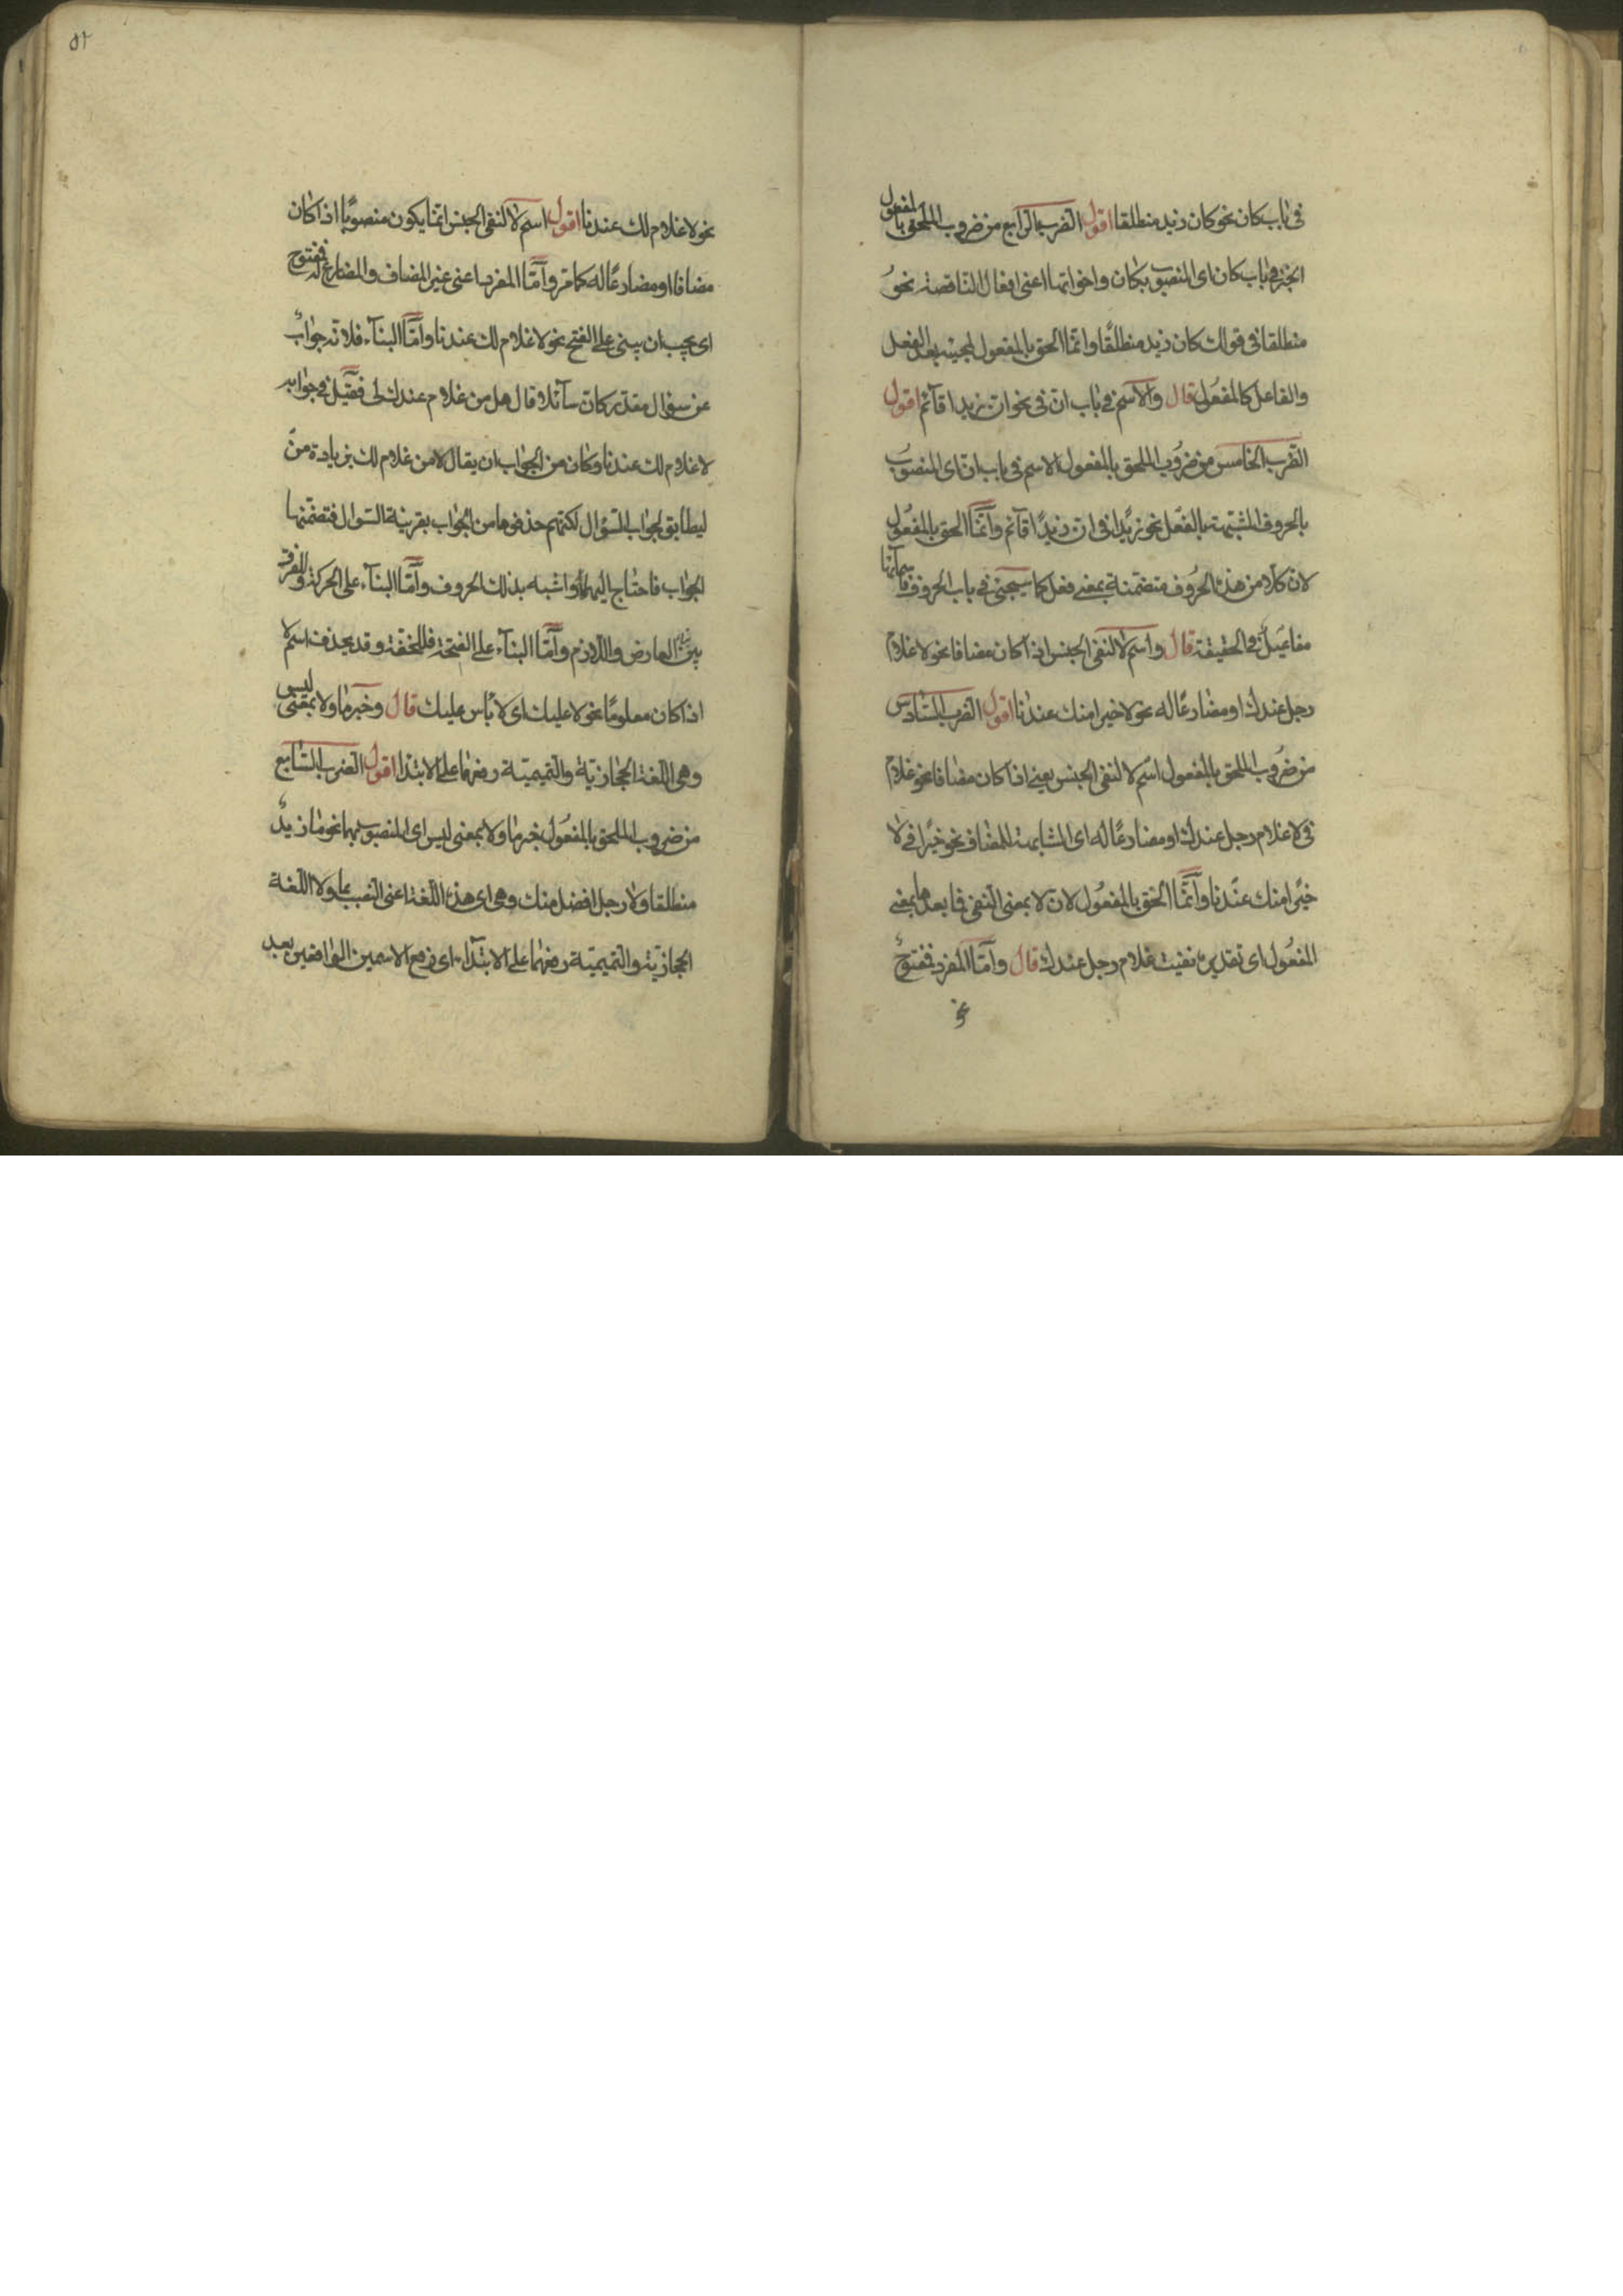 فى باب كان نحو كان زيد منطلقا اقول الضرب الرابع من ضروب الملحق بالمفعول
الخبر فى باب كان اى المنصوب بكان واخواتها اعنى افعال الناقصة نحو
منطلقا فى قولك كان زيد منطلقا وانما الحق بالمفعول لمجيئه بعد الفعل
والفاعل كالمفعول قال والاسم فى باب ان فى نحو ان زيدا قآئم اقول
الضرب الخامس من ضروب الملحق بالمفعول الاسم فى باب ان اى المنصوب
بالحروف المشبهة بالفعل نحو زيدا فى ان زيدًا قآئم وانما الحق بالمفعول
لان كلا من هذه الحروف متضمنة بمعنى فعل كما سيجئ فى باب الحروف فاسمآئها
مفاعيل فى الحقيقة قال واسم لا لنفى الجنس اذا كان مضافا نحو لا غلام
رجل عندك او مضارعًا له نحو لا خيرا منك عندنا اقول الضرب السّادس
من ضروب الملحق بالمفعول اسم لا لنفى الجنس يعنى اذا كان مضافا نحو غلام
فى لا غلام رجل عندك او مضارعًا له اى المشابهة للمضاف نحو خيرًا فى لا
خيرًا منك عندنا وانّما الحق بالمفعول لان لا بمعنى النفى فما بعدها بمعنى
المفعول اى تقديره نفيت غلام رجل عندك قال وامّا المفرد فمفتوح
نحو
٥٢
نحو لا غلام لك عندنا اقول اسم لا لنفى الجنس انما يكون منصوبًا اذا كان
مضافا او مضارعًا له كما مر وامّا المفرد اعنى غير المضاف والمضارع له فمفتوح
اى يجب ان يبنى على الفتح نحو لا غلام لك عندنا وامّا البنآء فلانه جواب
عن سؤال مقدر كان سآئلا قال هل من غلام عندك لى فقيل فى جوابه
لا غلام لك عندنا وكان من الجواب ان يقال لا من غلام لك بزيادة من
ليطابق الجواب السّؤال لكنهم حذفوها من الجواب بقرينة السّؤال فتضمنها
الجواب فاحتاج اليها واشبه بذلك الحروف وامّا البنآء على الحركة وللفرق
بين العارض واللازم وامّا البنآء على الفتحة فللخفّة وقد يحذف اسم لا
اذا كان معلومًا نحو لا عليك اى لا بأس عليك قال وخبر ما ولا بمعنى ليس
وهى اللّغة الحجازيّة والتميميّة رفعهما على الابتدا اقول الضرب السّابع
من ضروب الملحق بالمفعول خبر ما ولا بمعنى ليس اى المنصوب بهما نحو ما زيدٌ
منطلقا ولا رجل افضل منك وهى اى هذه اللّغة اعنى النّصب بما ولا اللّغة
الحجازيّة والتميميّة رفعهما على الابتدآء اى رفع الاسمين الواقعين بعد